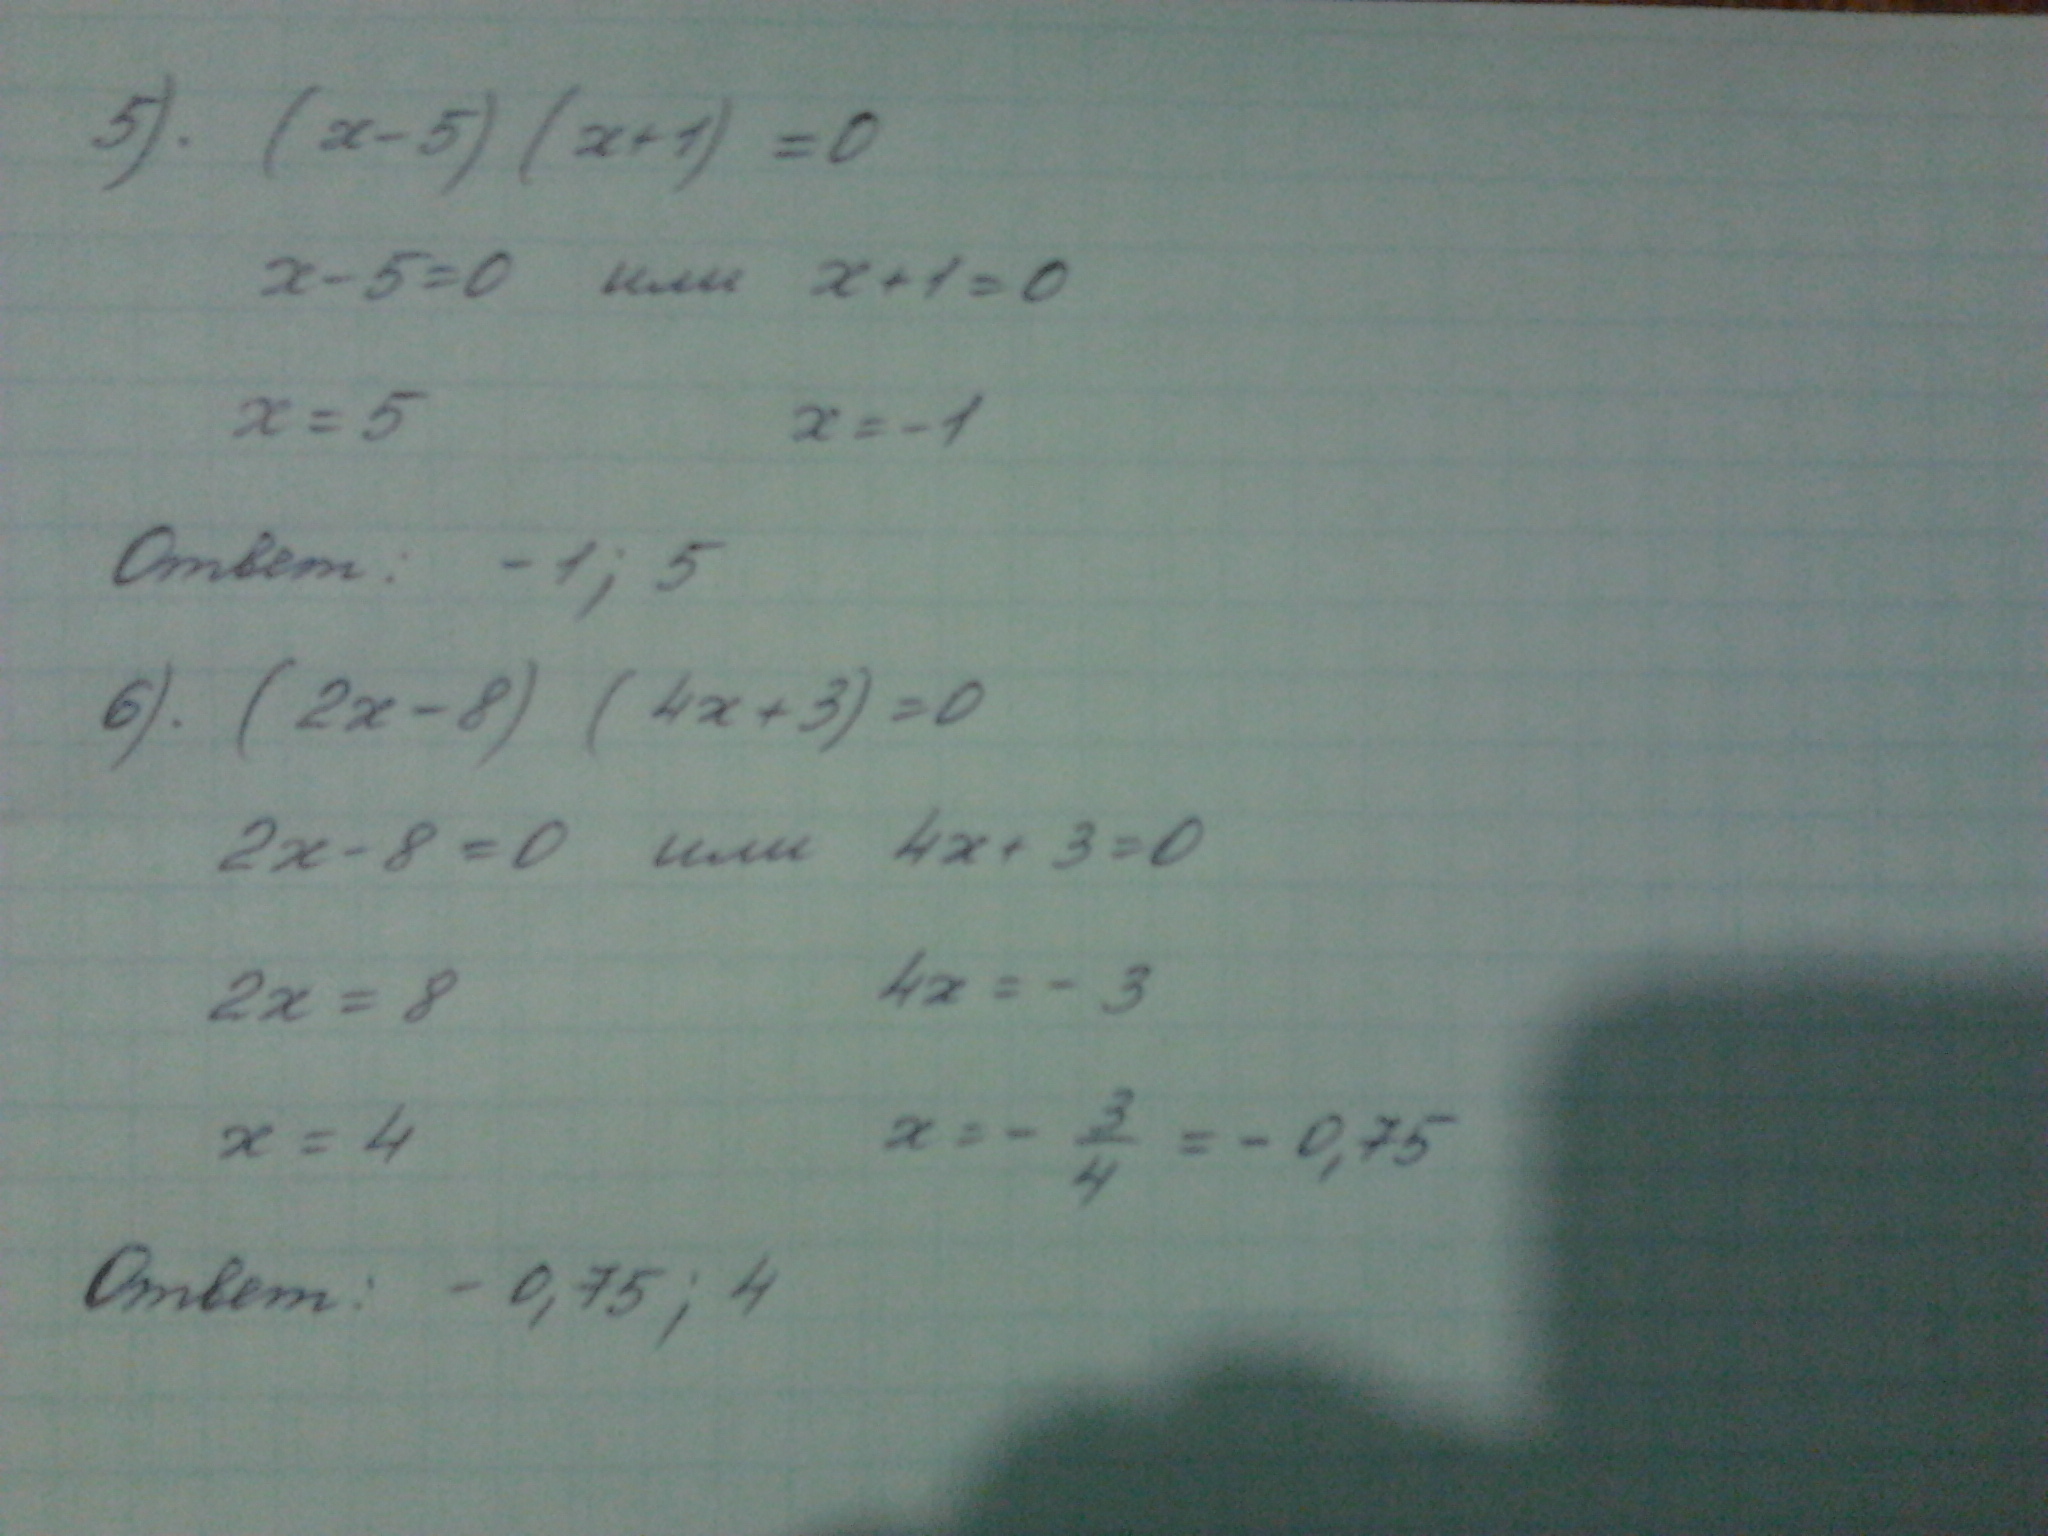 5). (x-5) (x+1) =0
x-5=0 или x+1=0
x=5 x=-1
Ответ: -1; 5
6). (2x-8) (4x+3)=0
2x-8=0 или 4x+3=0
2x=8 4x=-3
x=4 x=-3/4=-0,75
Ответ: -0,75; 4